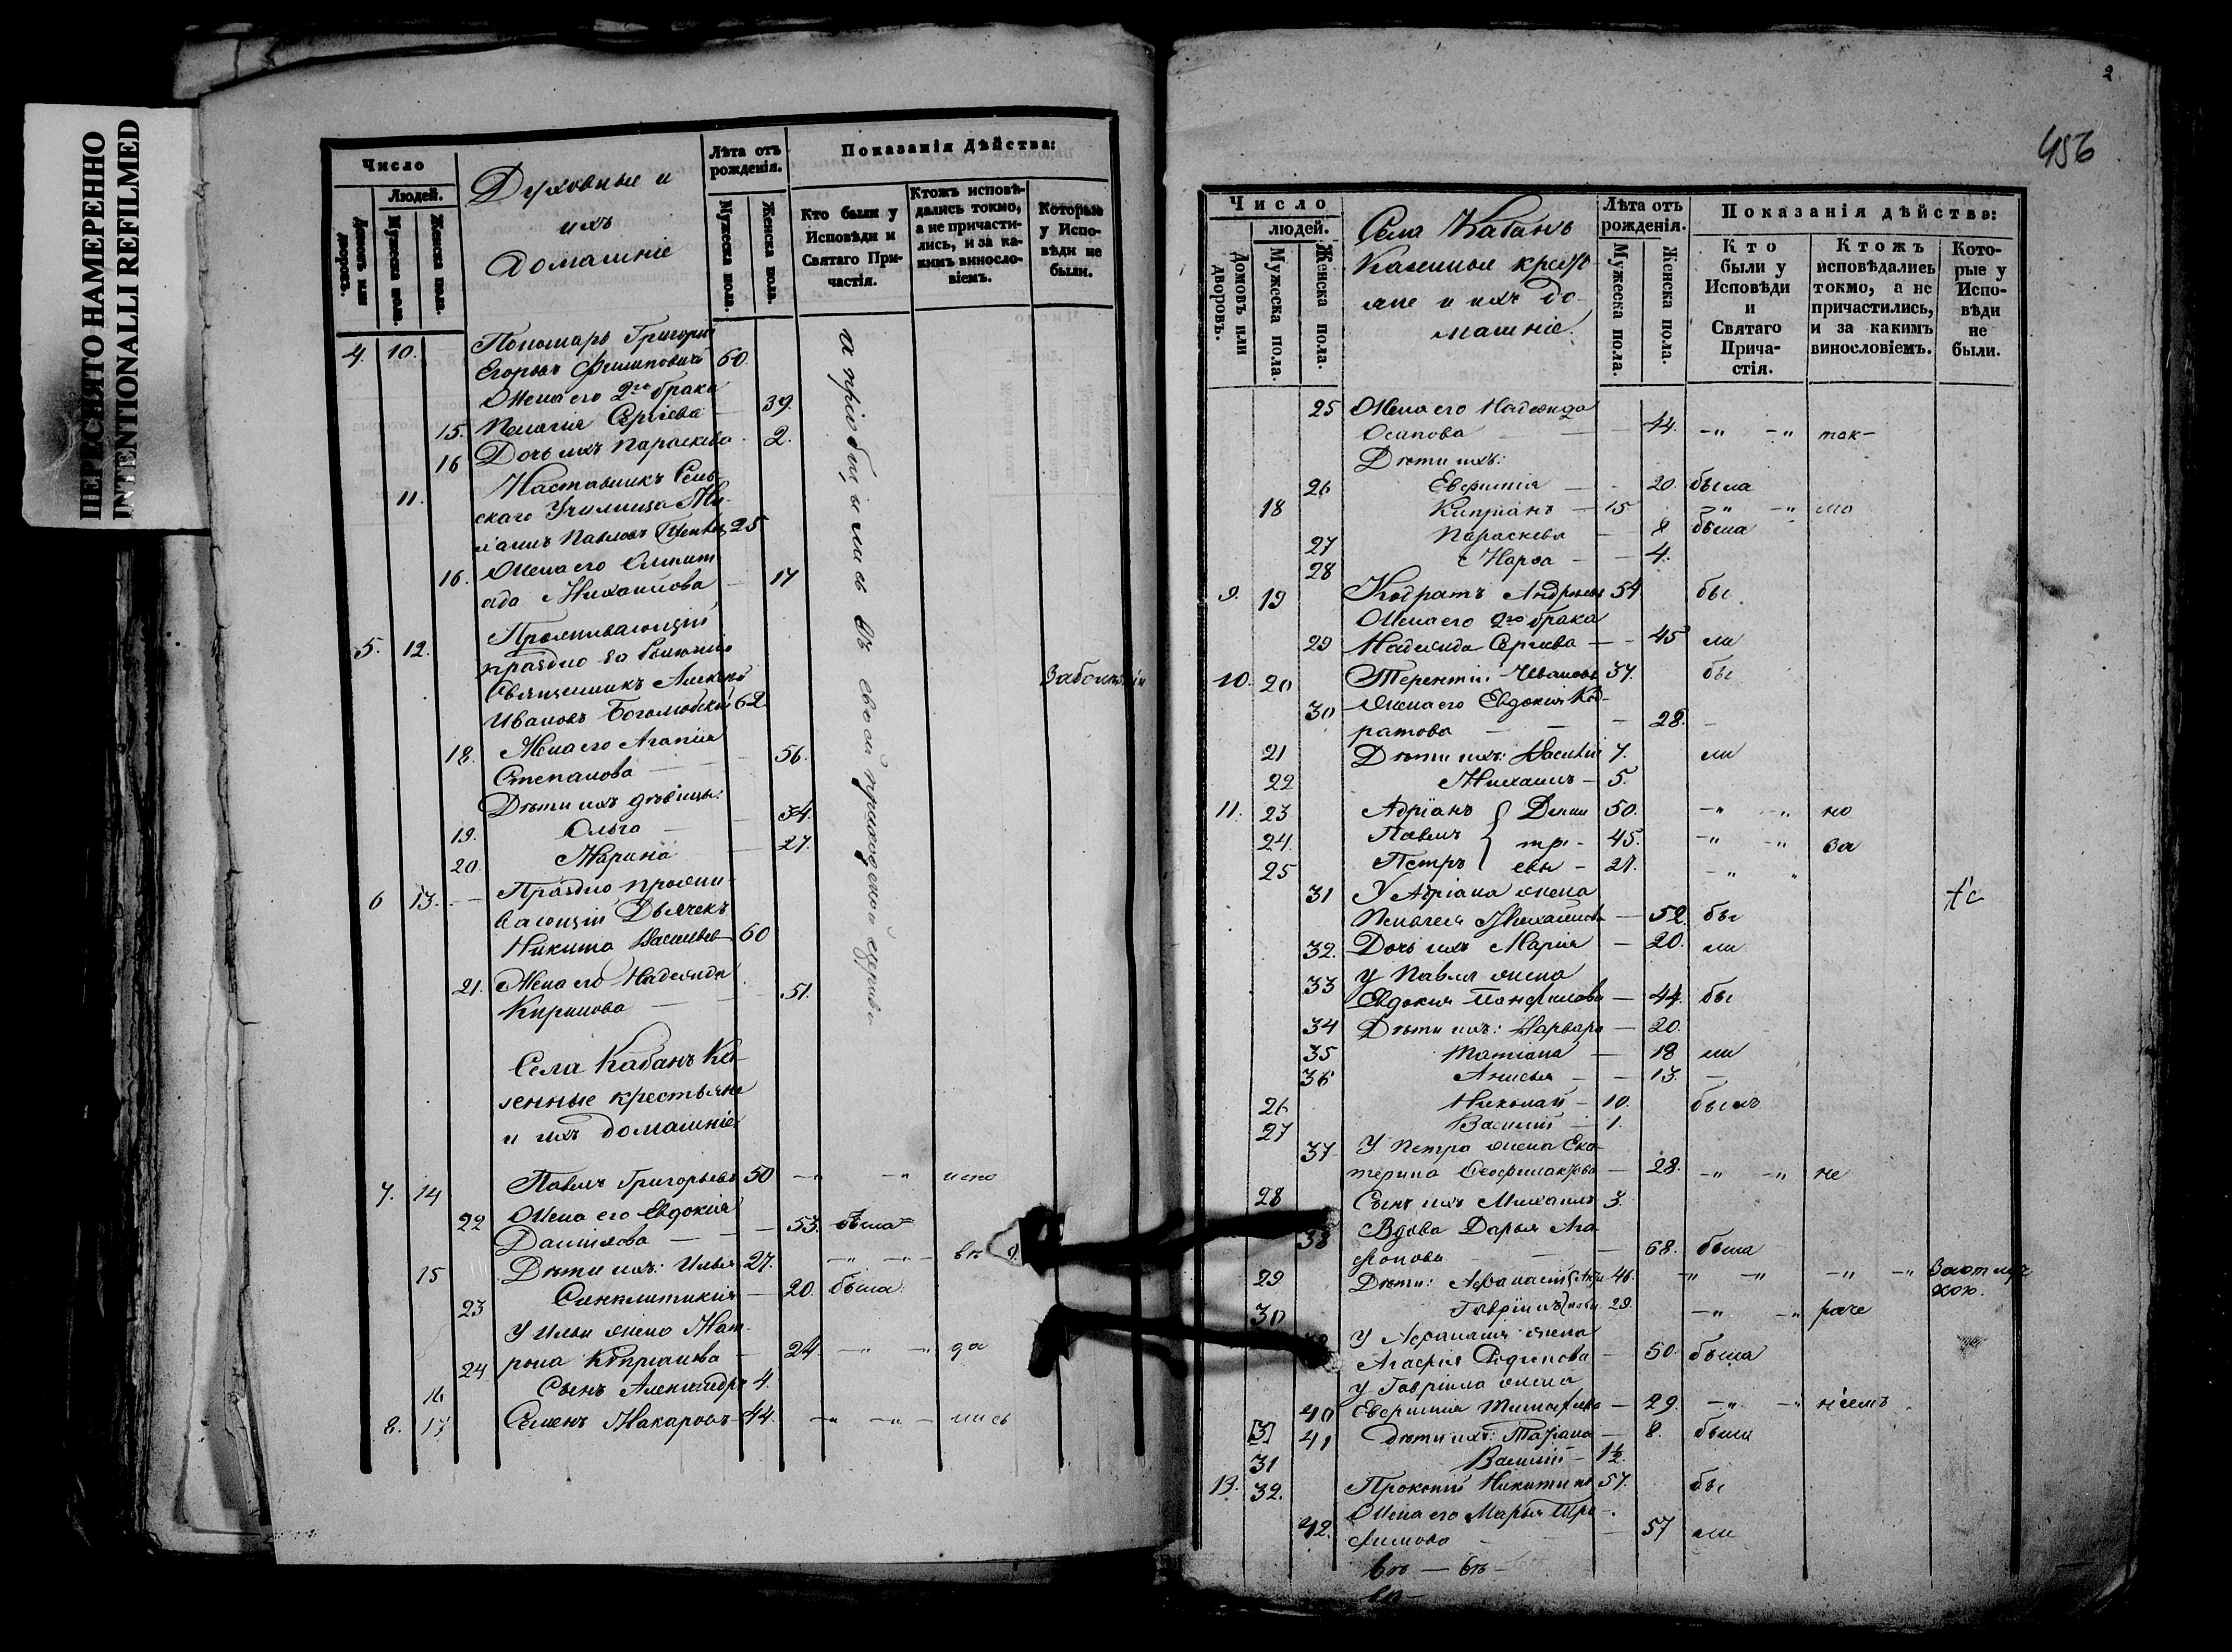 ПЕРЕСНЯТО НАМЕРЕННО
INTENTIONALLI REFILMED
Число
Людей.
Домовъ или дворовъ.
Мужеска пола.
Женска пола.
Духовные и
ихъ
домашніе
Лѣта отъ рожденія.
Мужеска пола.
Женска пола.
Показанія Дѣйства:
Кто были у Исповѣди и Святаго При-частія.
Ктожъ исповѣ-дались токмо, а не причасти-лись, и за ка-кимъ винослο-віемъ.
Которые у Испо-вѣди не были.
4. 10. Пономарь Григорій
Егоровъ Филиповичъ 60.
Жена его 2го брака
15. Пелагія Сергіева 39.
16 Дочь ихъ Параскева 2.
11. Наставникъ Сель-
скаго Училища Ми-
хаилъ Павловъ 25
16. Жена его Олимпі-
ада Михаилова 17
5. 12. Проживающій
праздно за болѣзнію
Священникъ Алексѣй
Ивановъ Боголюбскій 62
18. Жена его Агапія
Степанова 56.
Дѣти ихъ дѣвицы:
19. Ольга 34.
20. Марина 27.
6 13. Праздно прожи-
вающій Дьячекъ
Никита Васильевъ 60
21. Жена его Надежда
Кирилова 51.
Села Кабанъ Ка-
зенные крестьяне
и ихъ домашніе
7. 14 Павелъ Григорьевъ 50 испо
22 Жена его Евдокія
Данилова 53. была
15 Дѣти ихъ: Илья 27. вѣ
23 Синклитикія 20. была
У Ильи жена Мат-
24 рона Кипріанова 24. да
16 Сынъ Александръ 4.
8. 17 Семенъ Макаровъ 44. лись
2
456
Число
людей.
Домовъ или дворовъ.
Мужеска пола.
Женска пола.
Села Кабанъ
Казенные кресть
яне и ихъ до-
машніе.
Лѣта отъ рожденія.
Мужеска пола.
Женска пола.
Показанія дѣйства:
Кто были у Исповѣди и Святаго Прича-стія.
Ктожъ исповѣдались токмо, а не причастились, и за какимъ винословіемъ.
Кото-рые у Испо-вѣди не были.
25 Жена его Надежда
Осипова 44. ток-
Дѣти ихъ:
26 20. была
18 Кипріанъ 15 мо
27 Параскева 8 была
28 Марѳа 4.
9. 19 Кодратъ Андреевъ 54 бы
Жена его 2го брака
29 Надежда Сергіева 45 ли
10. 20 Терентій Ивановъ 37. бы
30 Жена его Евдокія Код-
ратова 28.
21 Дѣти ихъ: Василій 7. ли
22 Михаилъ 5.
11. 23 Адріанъ Дими 50. но
24. Павелъ трі- 45. за
25 Петръ евы 27.
31 У Адріана жена
Пелагея Михаилова 52. бы
32. Дочь ихъ Марія 20. ли
33 У Павла жена
Евдокія Панфилова 44. бы
34 Дѣти ихъ: Варвара 20.
35 Татіана 18 ли
36 Анисья 13.
26 Николай 10. былъ
27 Василій 1.
37 У Петра жена Ека-
терина Ѳеофилактова 28. не
28 Сынъ ихъ Михаилъ 3.
38 Вдова Дарья Ага-
фонова 68. была
29 Дѣти: Аѳанасій 46. За отлуч
кою.
30 Гавріилъ 29. раче
У Аѳанасія жена
Агафія Родіонова 50. была
У Гавріила жена
40 29. ніемъ
[3] 41 дѣти ихъ: Татіана 8. была
31 Василій 1½.
13. 32. Прокопій Никитинъ 57. бы
42. Жена его Марья Тро-
фимова 57 ли